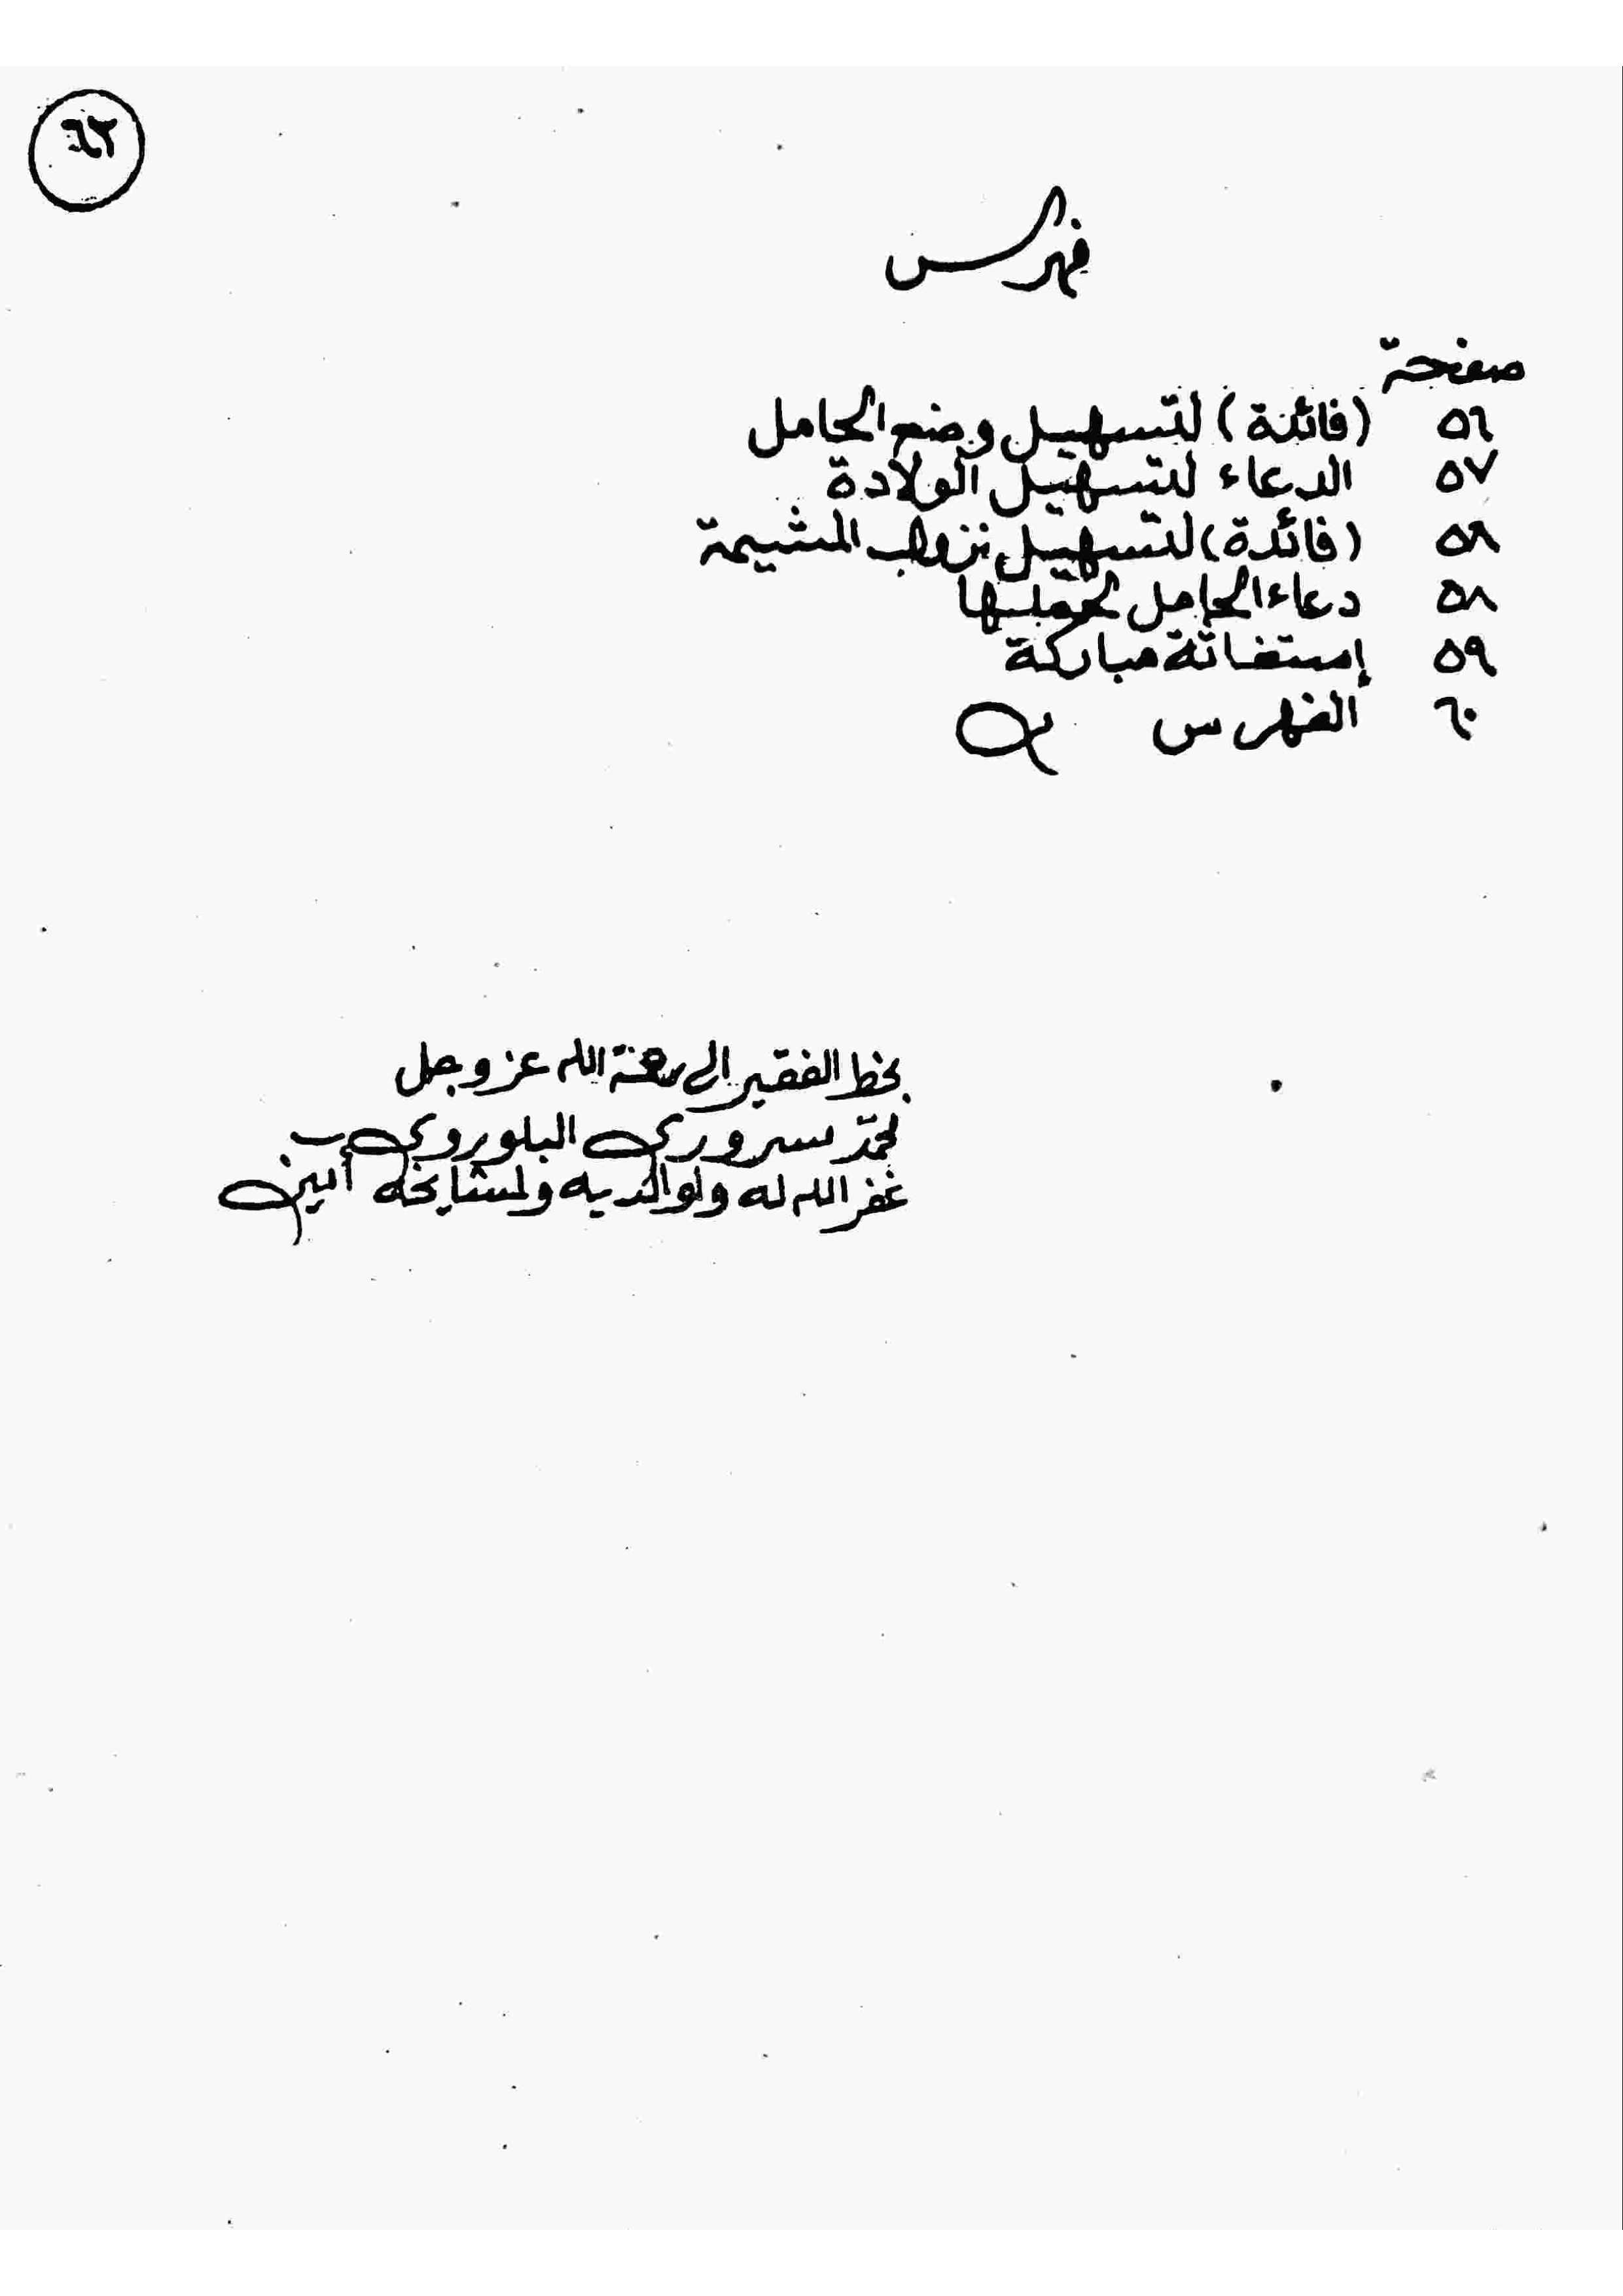 ٦٢
فهرس
صفحة
٥٦ (فائدة) لتسهيل وضع الحامل
٥٧ الدعاء لتسهيل الولادة
٥٨ (فائدة) لتسهيل نزول المشيمة
٥٨ دعاء الحامل
٥٩ إستغاثة مباركة
٦٠ الفهرس
بخط الفقير إلى رحمة الله عز وجل
محمد سروري البلوروي
غفر الله له ولوالديه ولمشايخه أمين